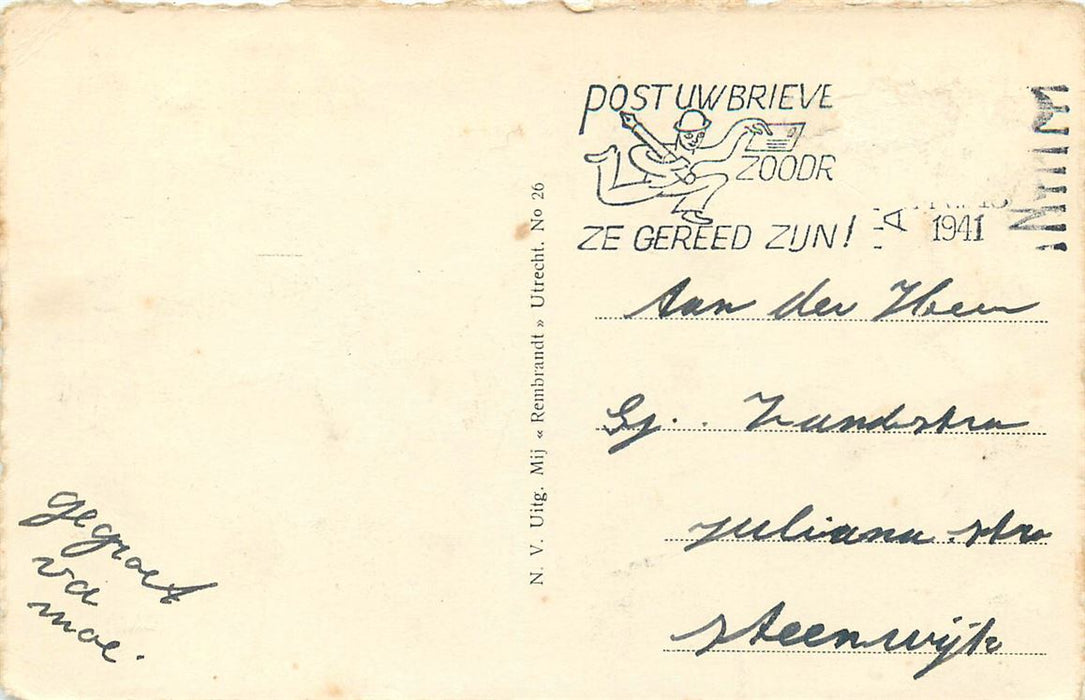 POST UW BRIEVE
ZOODR
ZE GEREED ZIJN!
1941
N. V. Uitg. Mij « Rembrandt » Utrecht. No 26
Aan den Heer
Gj. Zandstra
Juliana stra
Steenwijk
gegroet
va
moe.